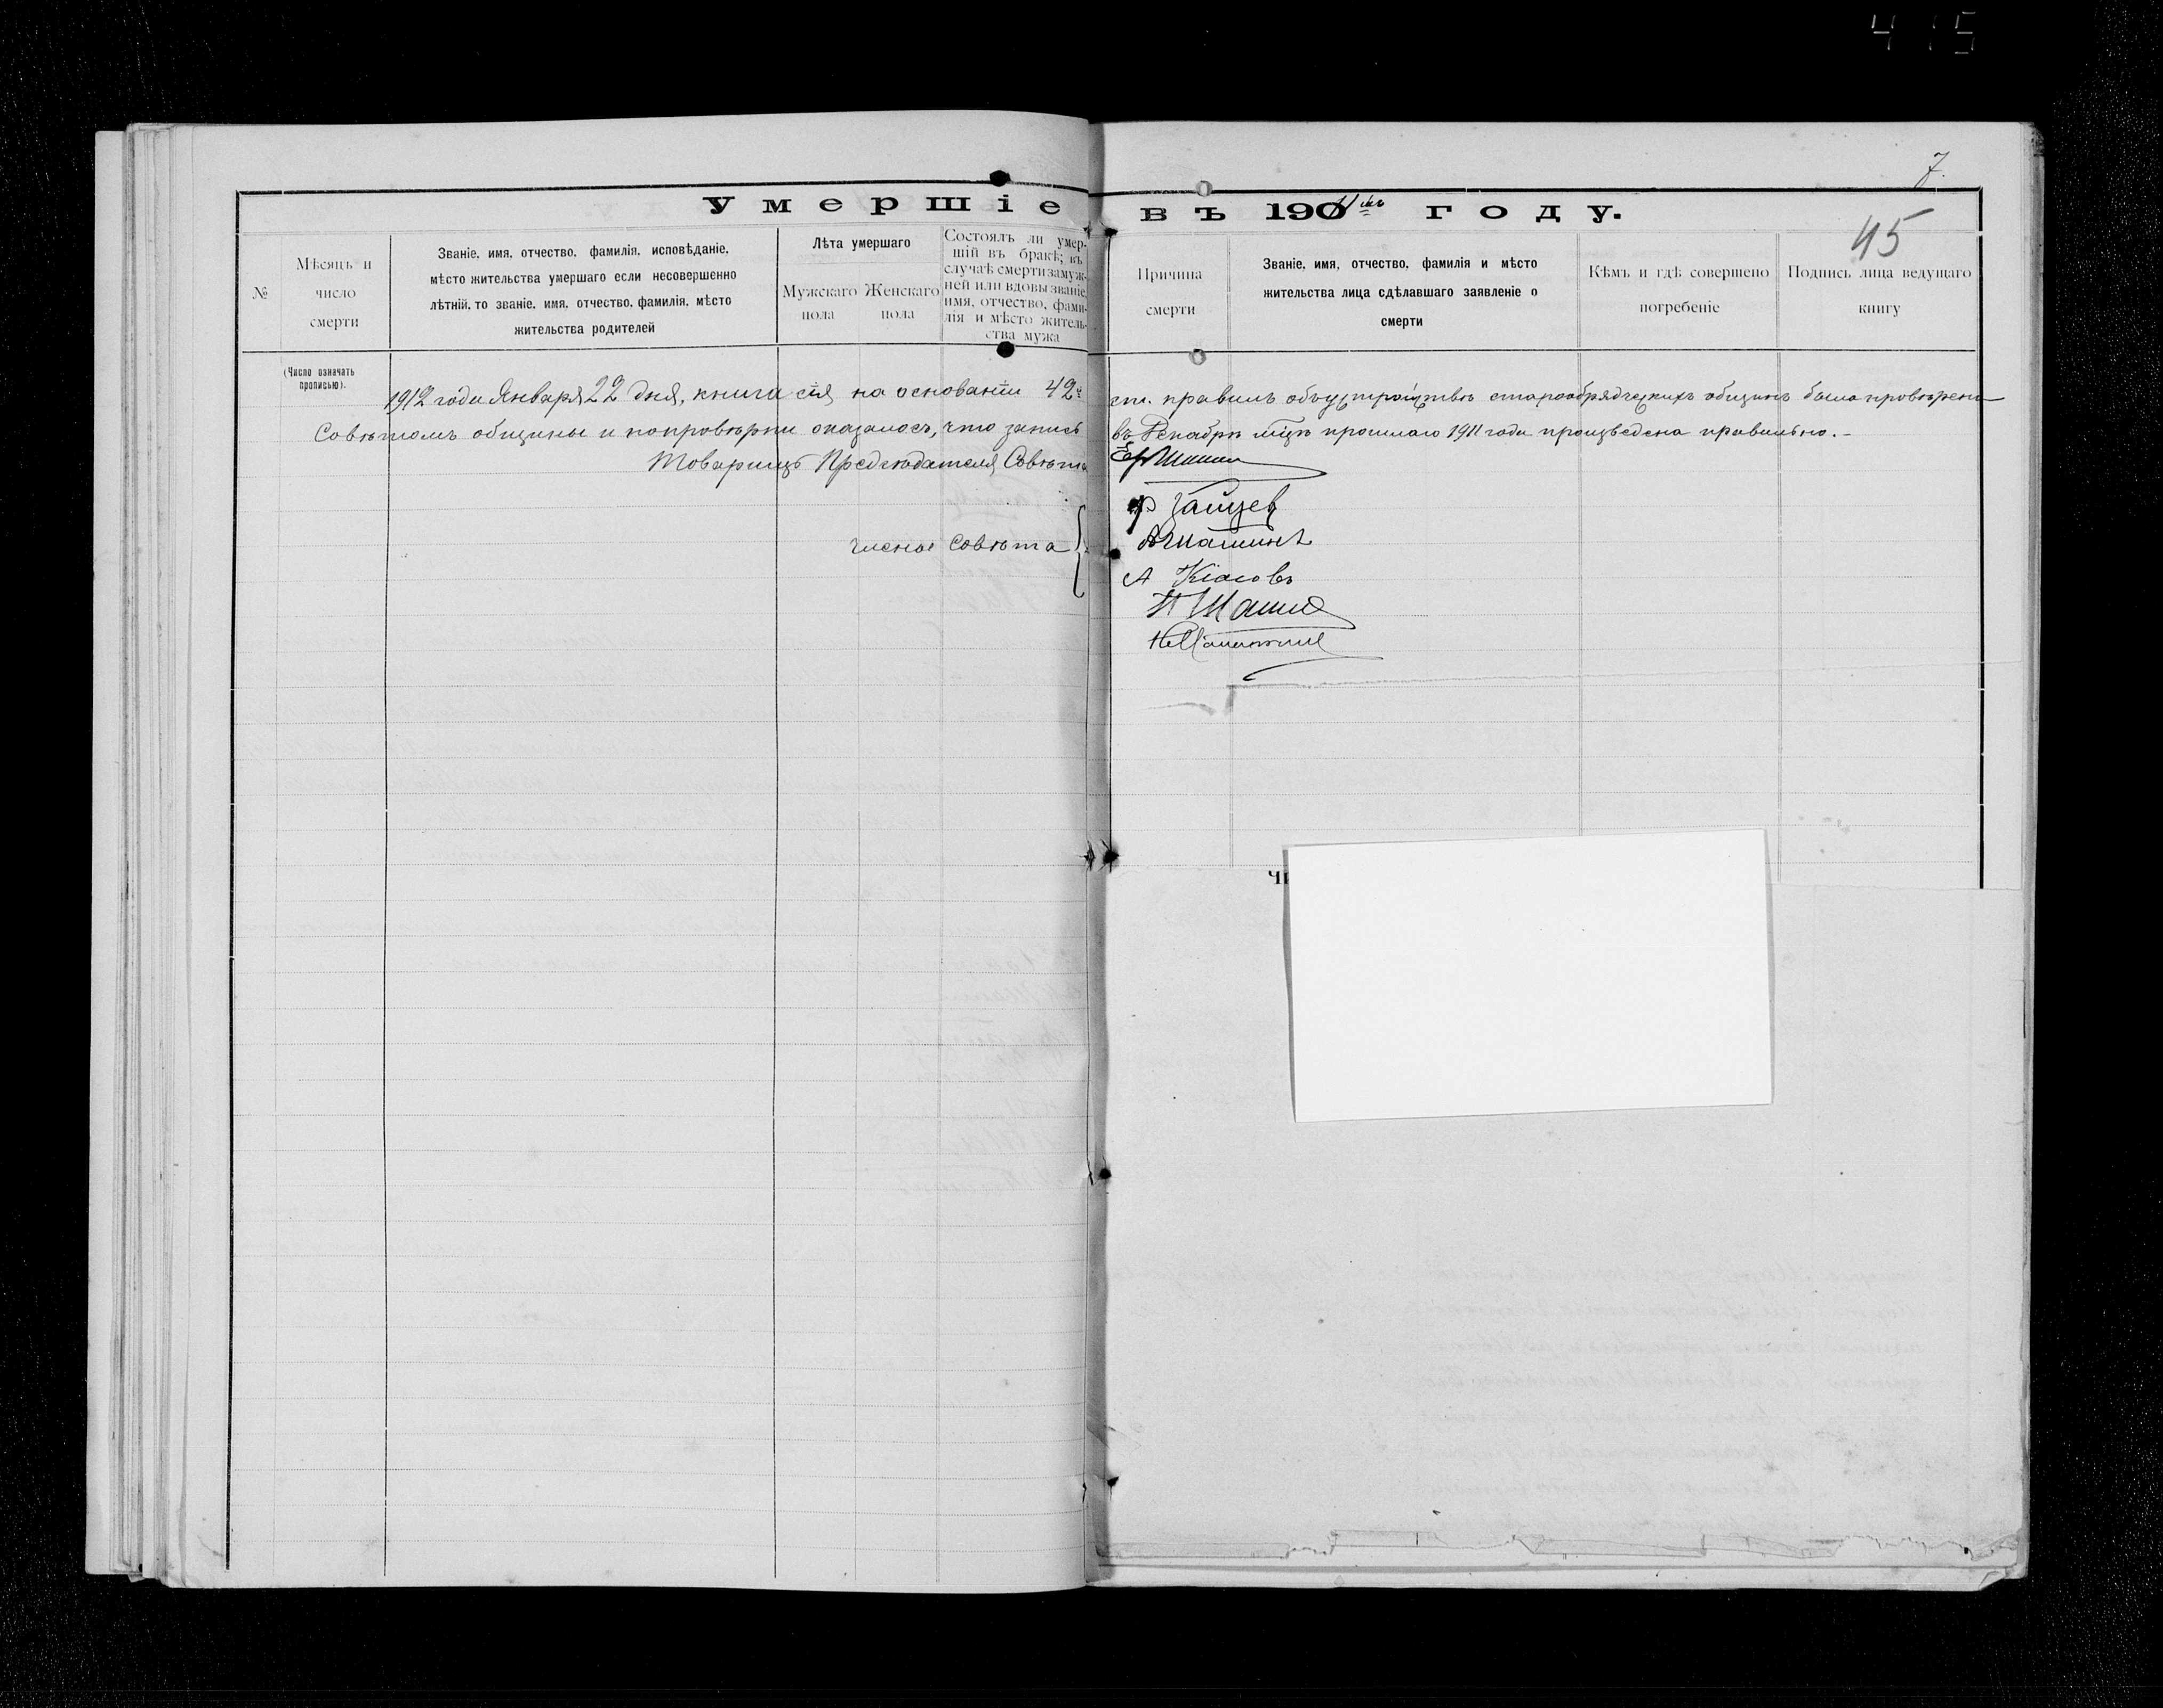 4 15
7.
Умершіе въ 1911мъ году.
45
№
Мѣсяцъ и
число
смерти
Званіе, имя, отчество, фамилія, исповѣданіе,
мѣсто жительства умершаго если несовершенно
лѣтній, то званіе, имя, отчество, фамилія, мѣсто
жительства родителей
Лѣта умершаго
Мужскаго
пола
Женскаго
пола
Состоялъ ли умер-
шій въ бракѣ; въ
случаѣ смерти замуж-
ней или вдовы званіе,
имя, отчество, фами-
лія и мѣсто житель-
ства мужа
Причина
смерти
Званіе, имя, отчество, фамилія и мѣсто
жительства лица сдѣлавшаго заявленіе о
смерти
Кѣмъ и гдѣ совершено
погребеніе
Подпись лица ведущаго
книгу
(Число означать
прописью).
1912 года Января 22 дня, книга сія на основаніи 42й ст. правилъ объ устройствѣ старообрядческихъ общинъ была провѣрена
Совѣтомъ общины и по провѣрки оказалось, что запись въ Декабрѣ мцѣ прошлаго 1911 года произведена правильно.-
Товарищъ Предсѣдателя Совѣта
Ф Зайцев
члены Совѣта
А
П Шашин
Чи